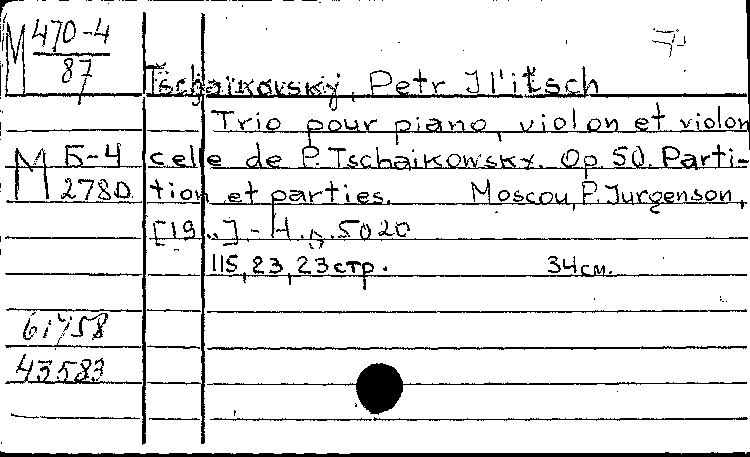 M 470-4
87
Tschaikovsky, Petr Il'itsch
Trio pour piano, violon et violon
M Б-4 celle de P. Tschaikowsky. Op. 50. Parti-
2780 tion et parties. Moscou, P. Jurgenson,
[19..]. - Н.д. 5020
115, 23, 23 стр. 34 см.
43583